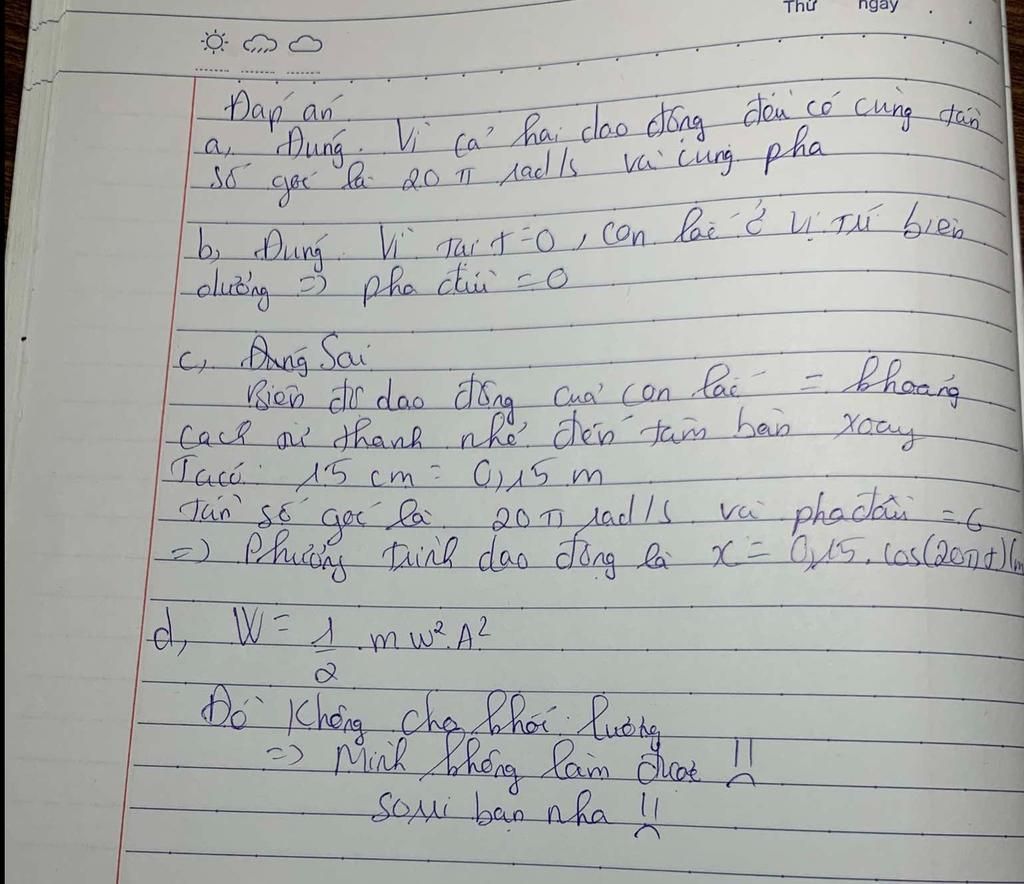 Thứ ngày
Đáp án
a, Đúng. Vì cả hai dao động đều có cùng tần
số góc là 20 π rad/s và cùng pha
b, Đúng. Vì tại t=0, con lắc ở vị trí biên
dương => pha đầu = 0
c, Đúng Sai
Biên độ dao động của con lắc = khoảng
cách từ thanh nhỏ đến tâm bàn xoay
Ta có: 15 cm = 0,15 m
Tần số góc là 20 π rad/s và pha đầu = 0
=> Phương trình dao động là x = 0,15. cos(20πt)(m
d, W = 1/2 .mw².A²
Đề không cho khối lượng
=> Mình không làm được !!
sorri bạn nha !!